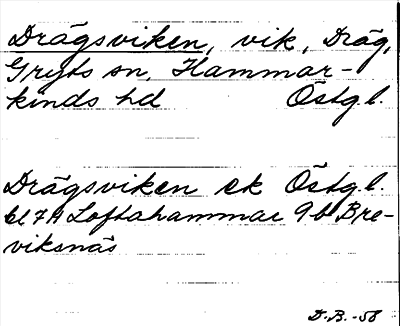 Drägsviken, vik, Dräg,
Gryts sn, Hammar-
kinds hd Östg.l.
Drägsviken ek Östg.l.
bl 7A Loftahammar 9b Bre-
viksnäs
D.B. -58